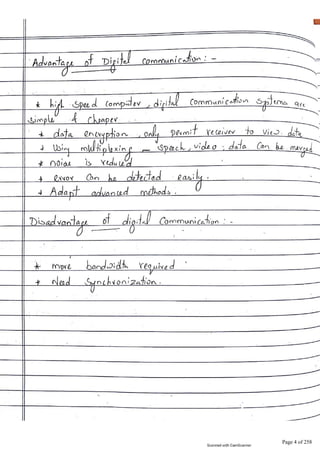 Advantage of Digital communication : -
* high speed computer , digital communication systems are
simple & cheaper
* data encryption , only permit receiver to view data
* Using multiplexing - speech , video , data can be merged
* noise is reduced
* error can be detected easily .
* Adapt advanced methods .
Disadvantage of digital Communication : -
* more bandwidth required .
* Need Synchronization .
Scanned with CamScanner
Page 4 of 258